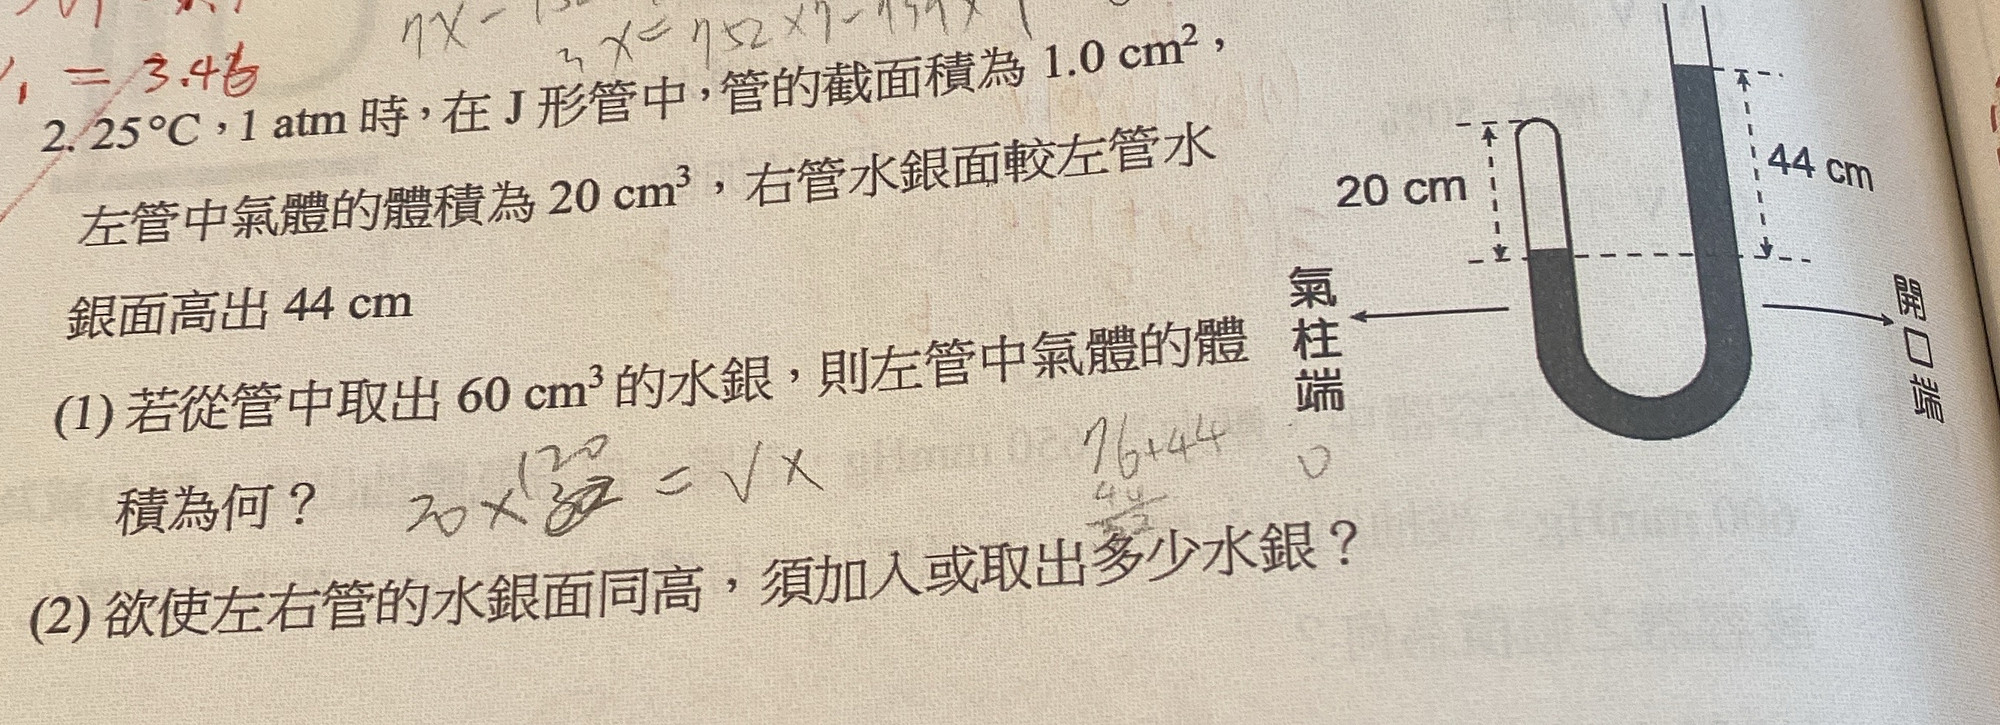 = 3.46
2. 25°C，1 atm 時，在 J 形管中，管的截面積為 1.0 cm²，
左管中氣體的體積為 20 cm³，右管水銀面較左管水
銀面高出 44 cm
(1) 若從管中取出 60 cm³ 的水銀，則左管中氣體的體
積為何？
20 × 120 = √x
76+44
(2) 欲使左右管的水銀面同高，須加入或取出多少水銀？
20 cm
44 cm
氣柱端
開口端